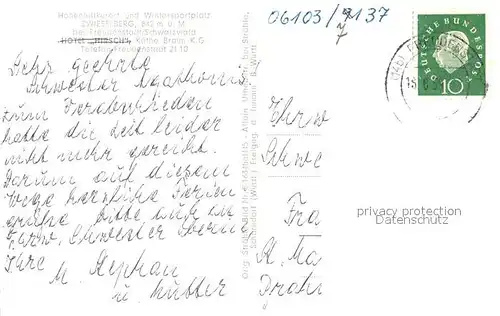 Höhenluftkurort und Wintersportplatz
ZWIESELBERG, 842 m ü. M.
bei Freudenstadt/Schwarzwald
HOTEL „HIRSCH", Käthe Braun K.G.
Telefon Freudenstadt 21 10
06103/9137
7
DEUTSCHE BUNDESPOST
10
Sehr geehrte
Schwester Agathonis
zum Verabschieden
hatte die Zeit leider
nicht mehr gereicht.
Darum auf diesem
Wege herzliche Ferien
grüße bitte auch an
Ehrw. Schwester
Ihre
M. Stephan
u. Mutter
Ehrw
Schwe
Fra
St. Ma
privacy protection
Datenschutz